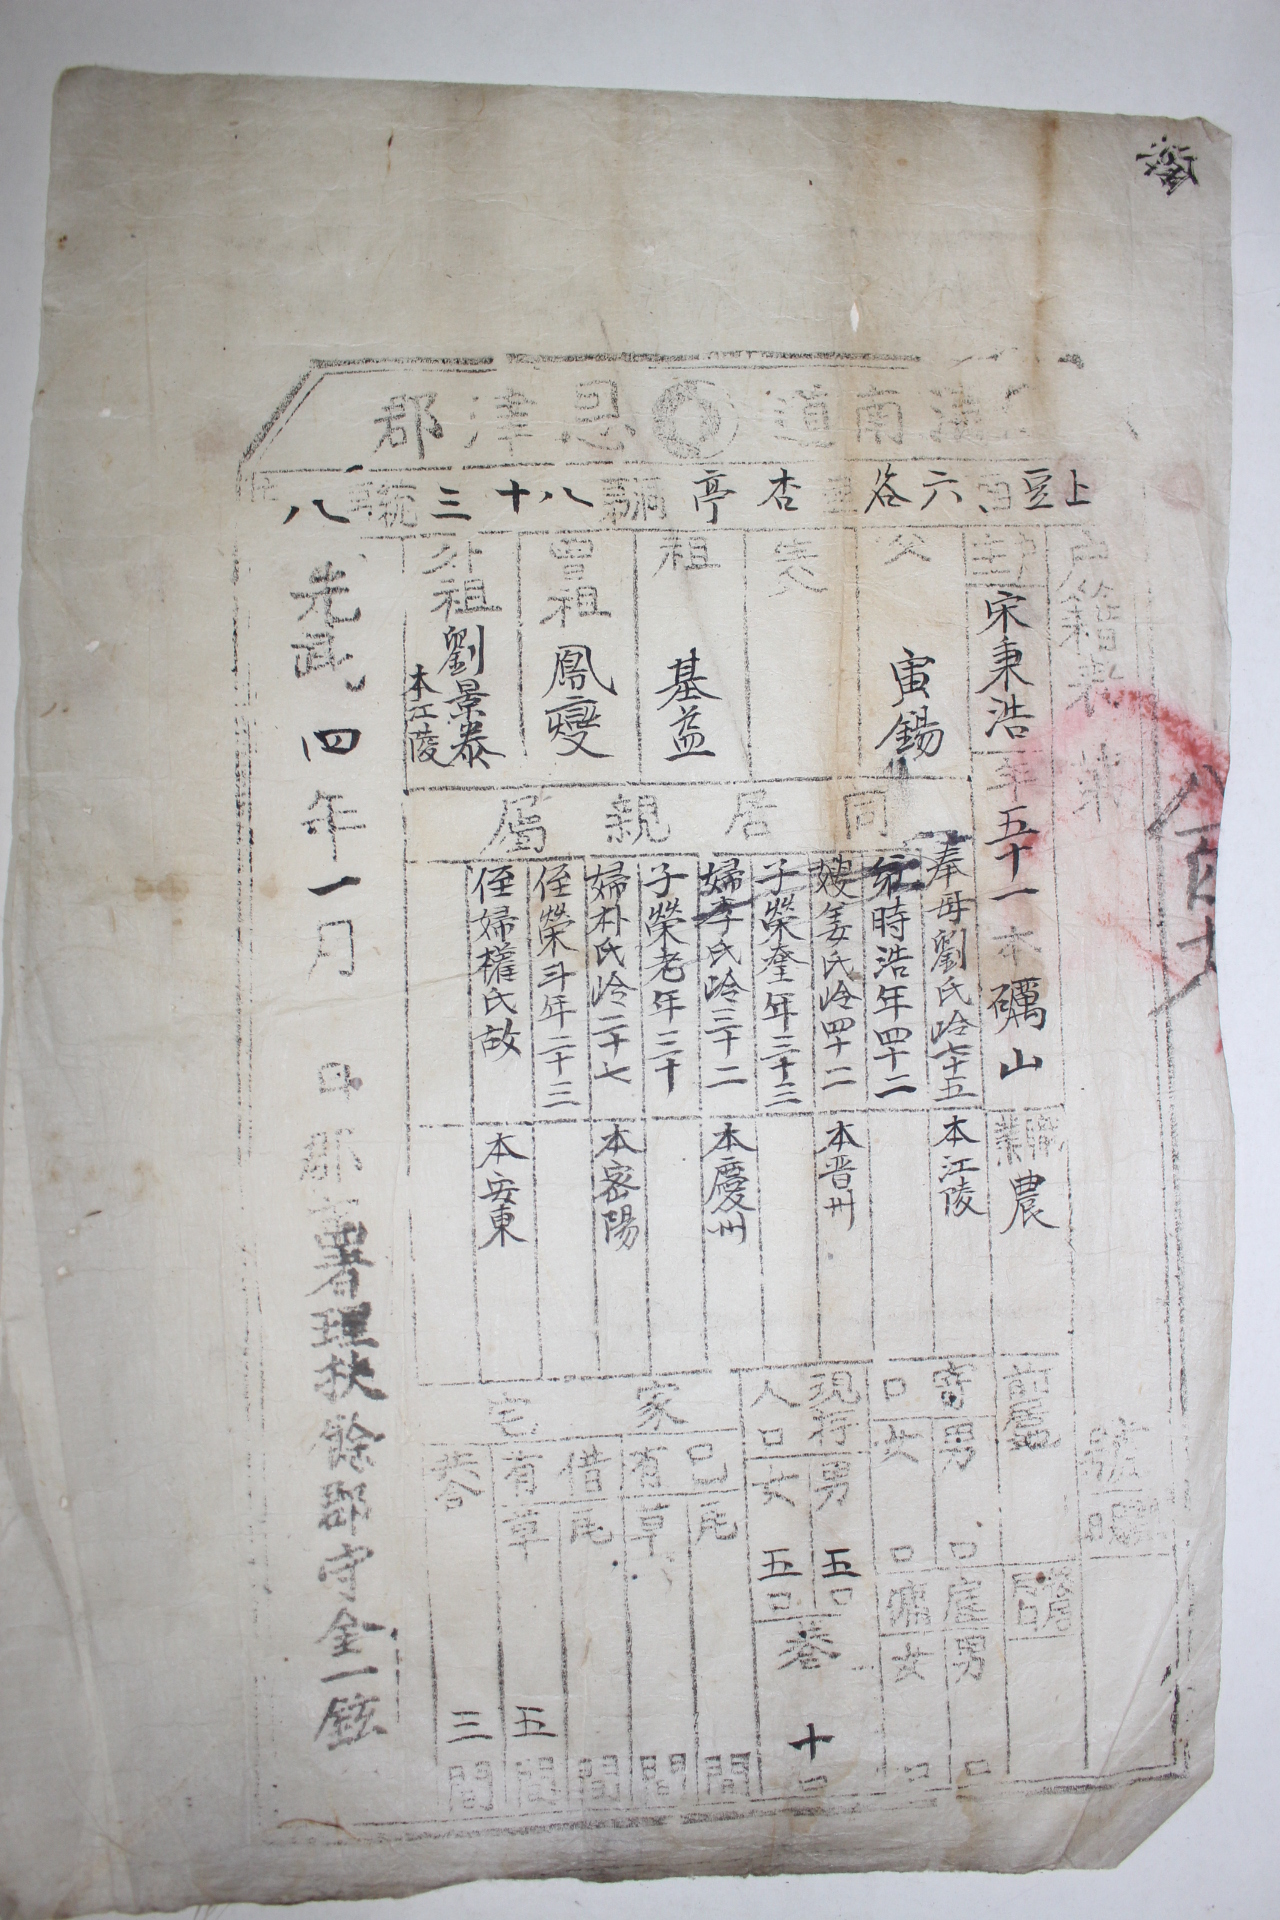 道南清
郡津恩
上豆面六谷里杏亭
八十三統八
戶籍表 第
號
戶主宋秉浩 年五十一 本礪山 職業農
前居
父 寅錫
生父
祖 基益
曾祖 鳳燮
外祖 劉景泰 本江陵
同居親屬
奉母劉氏岭七十五 本江陵
時浩年四十二
嫂姜氏岭四十二 本晋州
子榮奎年三十三
婦李氏岭三十二 本慶州
子榮老年三十
婦朴氏岭二十七 本密陽
侄榮斗年二十三
侄婦權氏故 本安東
寄口 男 口 女 口
雇傭 男 口 女 口
現存人口 男五口 女五口 共十口
家宅
己有 瓦 間 草 間
借有 瓦 間 草五間
共合 三間
光武四年一月 日 郡守署理扶餘郡守金一鉉